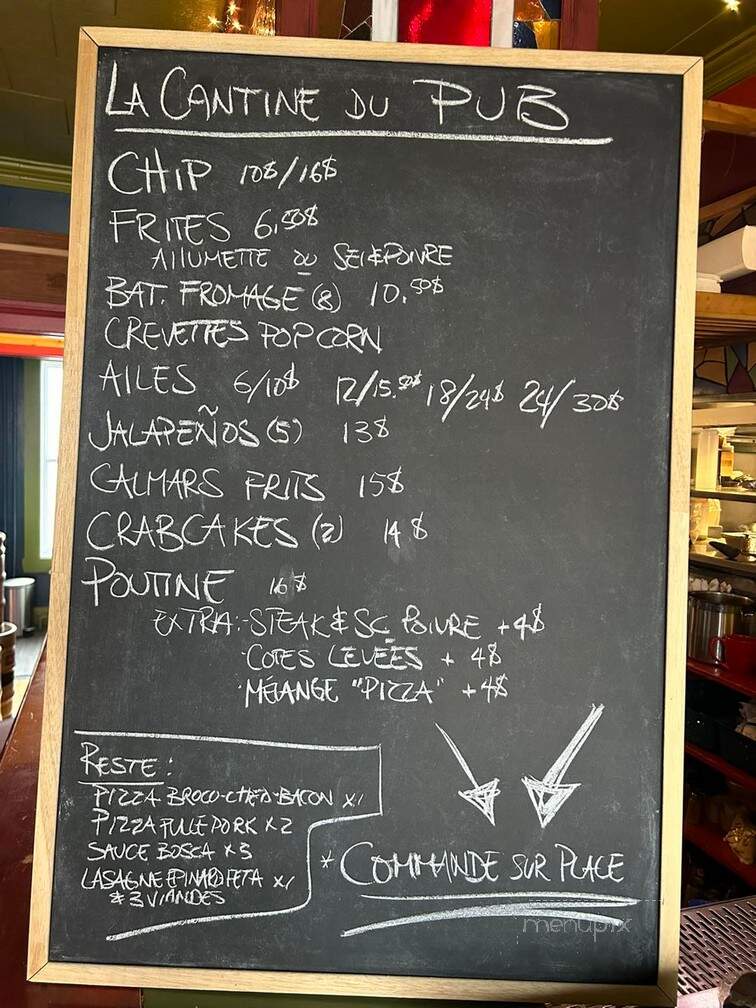 LA CANTINE DU PUB
CHIP 10$/16$
FRITES 6,50$
ALLUMETTE OU SEL&POIVRE
BAT. FROMAGE (8) 10.50$
CREVETTES POPCORN
AILES 6/10$ 12/15.50$ 18/24$ 24/30$
JALAPEÑOS (5) 13$
CALMARS FRITS 15$
CRABCAKES (2) 14$
POUTINE 16$
EXTRA: -STEAK & SC. POIVRE +4$
·COTES LEVÉES + 4$
·MÉLANGE "PIZZA" +4$
RESTE:
PIZZA BROCO-CHED-BACON X1
PIZZA PULLEPORK X2
SAUCE BOSCA X3
LASAGNE EPINARD FETA X1
* 3 VIANDES
* COMMANDE SUR PLACE
menupix